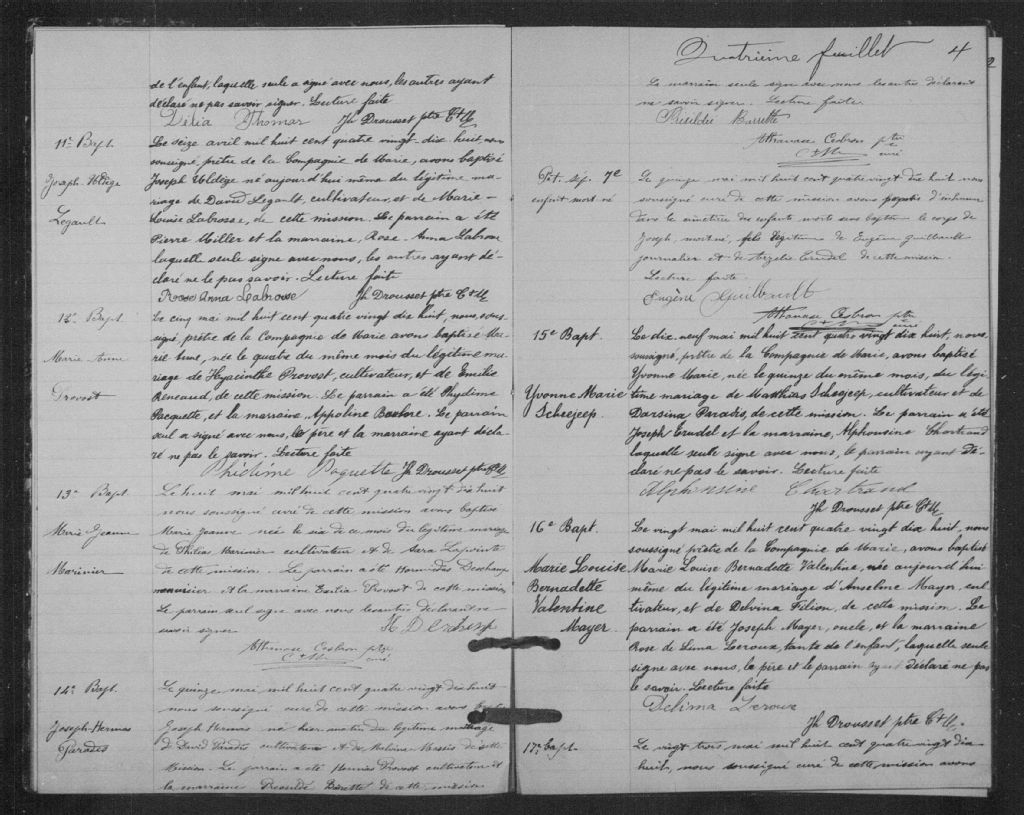 de l'enfant, laquelle seule a signé avec nous, les autres ayant
déclaré ne pas savoir signer. Lecture faite
Délia Thomas Jh Drousset ptre C+M
11e Bapt. Le seize avril mil huit cent quatre vingt-dix huit, nous
soussigné, prêtre de la Compagnie de Marie, avons baptisé
Joseph-Uldège Joseph Uldège né aujourd'hui même du légitime ma-
riage de David Legault, cultivateur, et de Marie-
Legault Louise Labrosse, de cette mission. Le parrain a été
Pierre Miller et la marraine, Rose-Anna Labrosse
laquelle seule signe avec nous, les autres ayant dé-
claré ne le pas savoir. Lecture faite
Rose Anna Labrosse Jh Drousset ptre C+M
12e Bapt. Le cinq mai mil huit cent quatre vingt dix huit, nous, sous-
signé, prêtre de la Compagnie de Marie avons baptisé Ma-
Marie Anne rie-Anne, née le quatre du même mois du légitime ma-
riage de Hyacinthe Provost, cultivateur, et de Emilie
Provost Reneaud, de cette mission. Le parrain a été Phydime
Pacquette, et la marraine, Appoline. Le parrain
seul a signé avec nous, le père et la marraine ayant décla-
ré ne pas le savoir. Lecture faite
Phédime Paquette Jh Drousset ptre C+M
13e Bapt. Le huit mai mil huit cent quatre vingt dix huit
nous soussigné curé de cette mission avons baptisé
Marie Jeanne Marie Jeanne née le six de ce mois du légitime mariage
de Philias Marinier cultivateur et de Sara Lapointe
Marinier de cette mission. Le parrain a été Hormidas Deschamps
menuisier et la marraine Exilia Provost de cette mission
Le parrain seul signe avec nous les autres déclarant ne
savoir signer
Athanase Cesbron ptre
C+M curé
14e Bapt. Le quinze mai mil huit cent quatre vingt dix huit
nous soussigné curé de cette mission avons baptisé
Joseph-Hermas Joseph Hermas né hier matin du légitime mariage
Paradis de David Paradis cultivateur et de Malvina Massis de cette
Mission. Le parrain a été Hermas Provost cultivateur et
la marraine de cette mission
Quatrième feuillet 4
La marraine seule signe avec nous les autres déclarant
ne savoir signer. Lecture faite
Présildé Barrette
Athanase Cesbron ptre
C+M curé
Pet. sép. 7e Le quinze mai mil huit cent quatre vingt dix huit nous
enfant mort né soussigné curé de cette mission avons permis d'inhumer
dans le cimetière des enfants morts sans baptême le corps de
Joseph, mort né, fils légitime de Eugène Guilbault
journalier et de Azélie Trudel de cette mission.
Lecture faite.
Eugène Guilbault
Athanase Cesbron ptre
C+M curé
15e Bapt. Le dix neuf mai mil huit cent quatre vingt dix huit, nous
soussigné, prêtre de la Compagnie de Marie, avons baptisé
Yvonne Marie, née le quinze du même mois, du légi-
Yvonne Marie time mariage de Matthias Schejcep, cultivateur et de
Schejcep. Darsina Paradis, de cette mission. Le parrain a été
Joseph Trudel et la marraine, Alphonsine Chartrand
laquelle seule signe avec nous, le parrain ayant dé-
claré ne pas le savoir. Lecture faite
Alphonsine Chartrand
Jh Drousset ptre C+M
16e Bapt. Le vingt mai mil huit cent quatre vingt dix huit, nous
soussigné prêtre de la Compagnie de Marie, avons baptisé
Marie Louise Marie Louise Bernadette Valentine, née aujourd'hui
Bernadette même du légitime mariage d'Anselme Mayer, cul-
Valentine tivateur, et de Delvina Filion, de cette mission. Le
Mayer parrain a été Joseph Mayer, oncle, et la marraine
Rose de Lima Leroux, tante de l'enfant, laquelle seule
signe avec nous, le père et le parrain ayant déclaré ne pas
le savoir. Lecture faite
Delima Leroux
Jh Drousset ptre C+M.
17e Bapt. Le vingt trois mai mil huit cent quatre vingt dix
huit, nous soussigné curé de cette mission avons